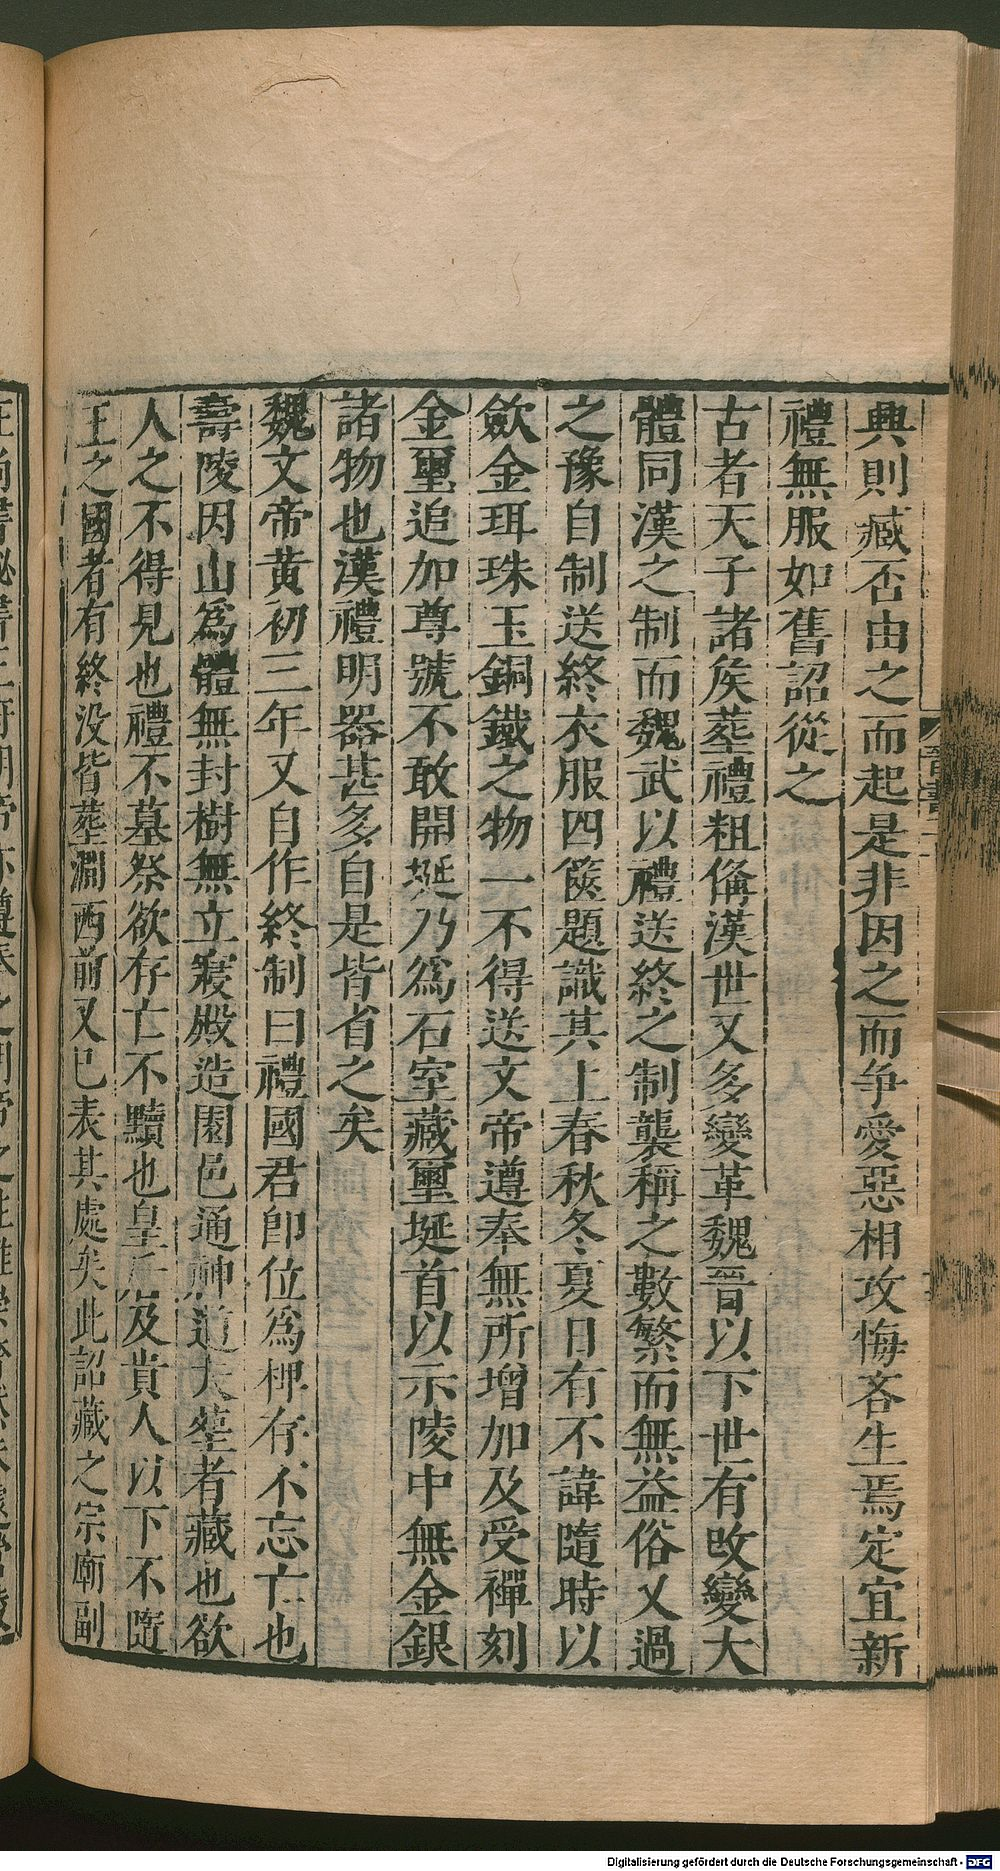 興則臧否由之而起是非因之而争愛惡相攻悔吝生焉定宜新
禮無服如舊詔從之
古者天子諸矦塟禮粗俻漢世又多變革魏晉以下世有改變大
體同漢之制而魏武以禮送終之制襲稱之數繁而無益俗又過
之豫自制送終衣服四篋題識其上春秋冬夏日有不諱隨時以
歛金珥珠玉銅鐵之物一不得送文帝遵奉無所增加及受禪刻
金璽追加尊號不敢開埏乃爲石室藏璽埏首以示陵中無金銀
諸物也漢禮明器甚多自是皆省之矣
魏文帝黄初三年又自作終制曰禮國君即位爲椑存不忘亡也
壽陵因山爲體無封樹無立寢殿造園邑通神道夫塟者藏也欲
人之不得見也禮不墓祭欲存亡不黷也皇后及貴人以下不隨
王之國者有終没皆塟澗西前又已表其處矣此詔藏之宗廟副
Digitalisierung gefördert durch die Deutsche Forschungsgemeinschaft - DFG